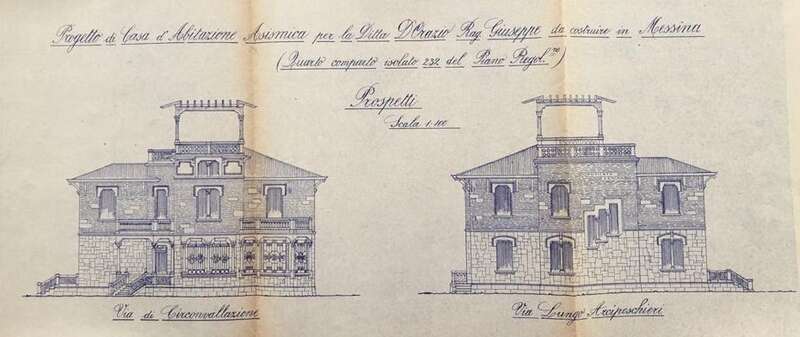 Progetto di Casa d'Abitazione Asismica per la Ditta D'Orazio Rag. Giuseppe da costruire in Messina
(Quarto comparto isolato 232 del Piano Regol.re)
Prospetti
Scala 1:100
Via di Circonvallazione
Via Lungo Arcipeschieri